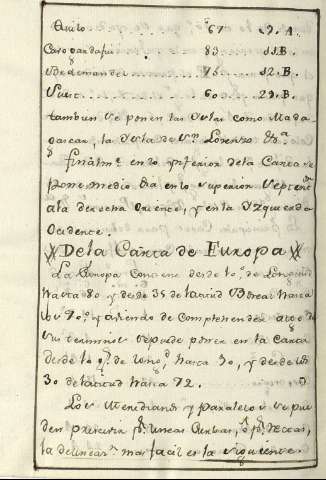 Quilo........ 67 .... 29. A.
Caro guardafui 83 .... 11. B.
Bdedmandel 75 .... 12. B.
Suit...... 60 .... 29. B.
tambien se ponen las Yslas como Mada
gascar, la Ysla de Sn Lorenzo &a.
finalme. en lo ynferior dela Carta se
pone medio dia en lo superior Septenon
ala derecha Oriente, y en la Yzquierda
Ocidente.
De la Carta de Europa
La Europa contiene desde 10. de Longitud
hasta 80 y desde 35 de latitud Boreal hasta
los 70. y haviendo de comprehender
sus terminos se puede poner en la carta
desde lo de long.d hasta 90, y desde los
30 de latitud hasta 72.
Los Meridianos y paralelos se pue
den por lineas Curbas, ó pr. rectas,
la delinear.n mas facil es la siguiente.